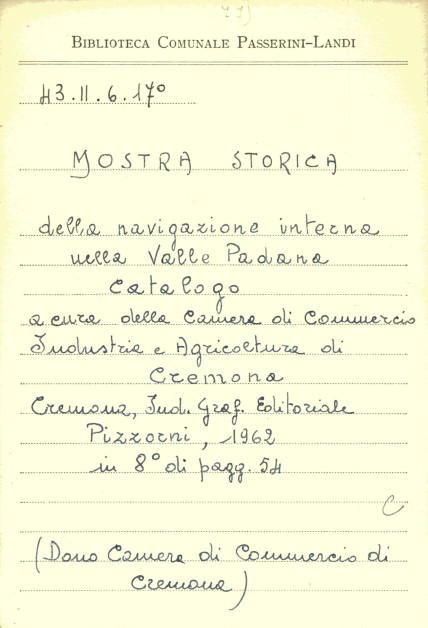 77)
BIBLIOTECA COMUNALE PASSERINI-LANDI
43.II.6.17°
MOSTRA STORICA
della navigazione interna
nella Valle Padana
Catalogo
a cura della Camera di Commercio
Industria e Agricoltura di
Cremona
Cremona, Ind. Graf. Editoriale
Pizzorni, 1962
in 8° di pagg. 54
C
(Dono Camera di Commercio di
Cremona)